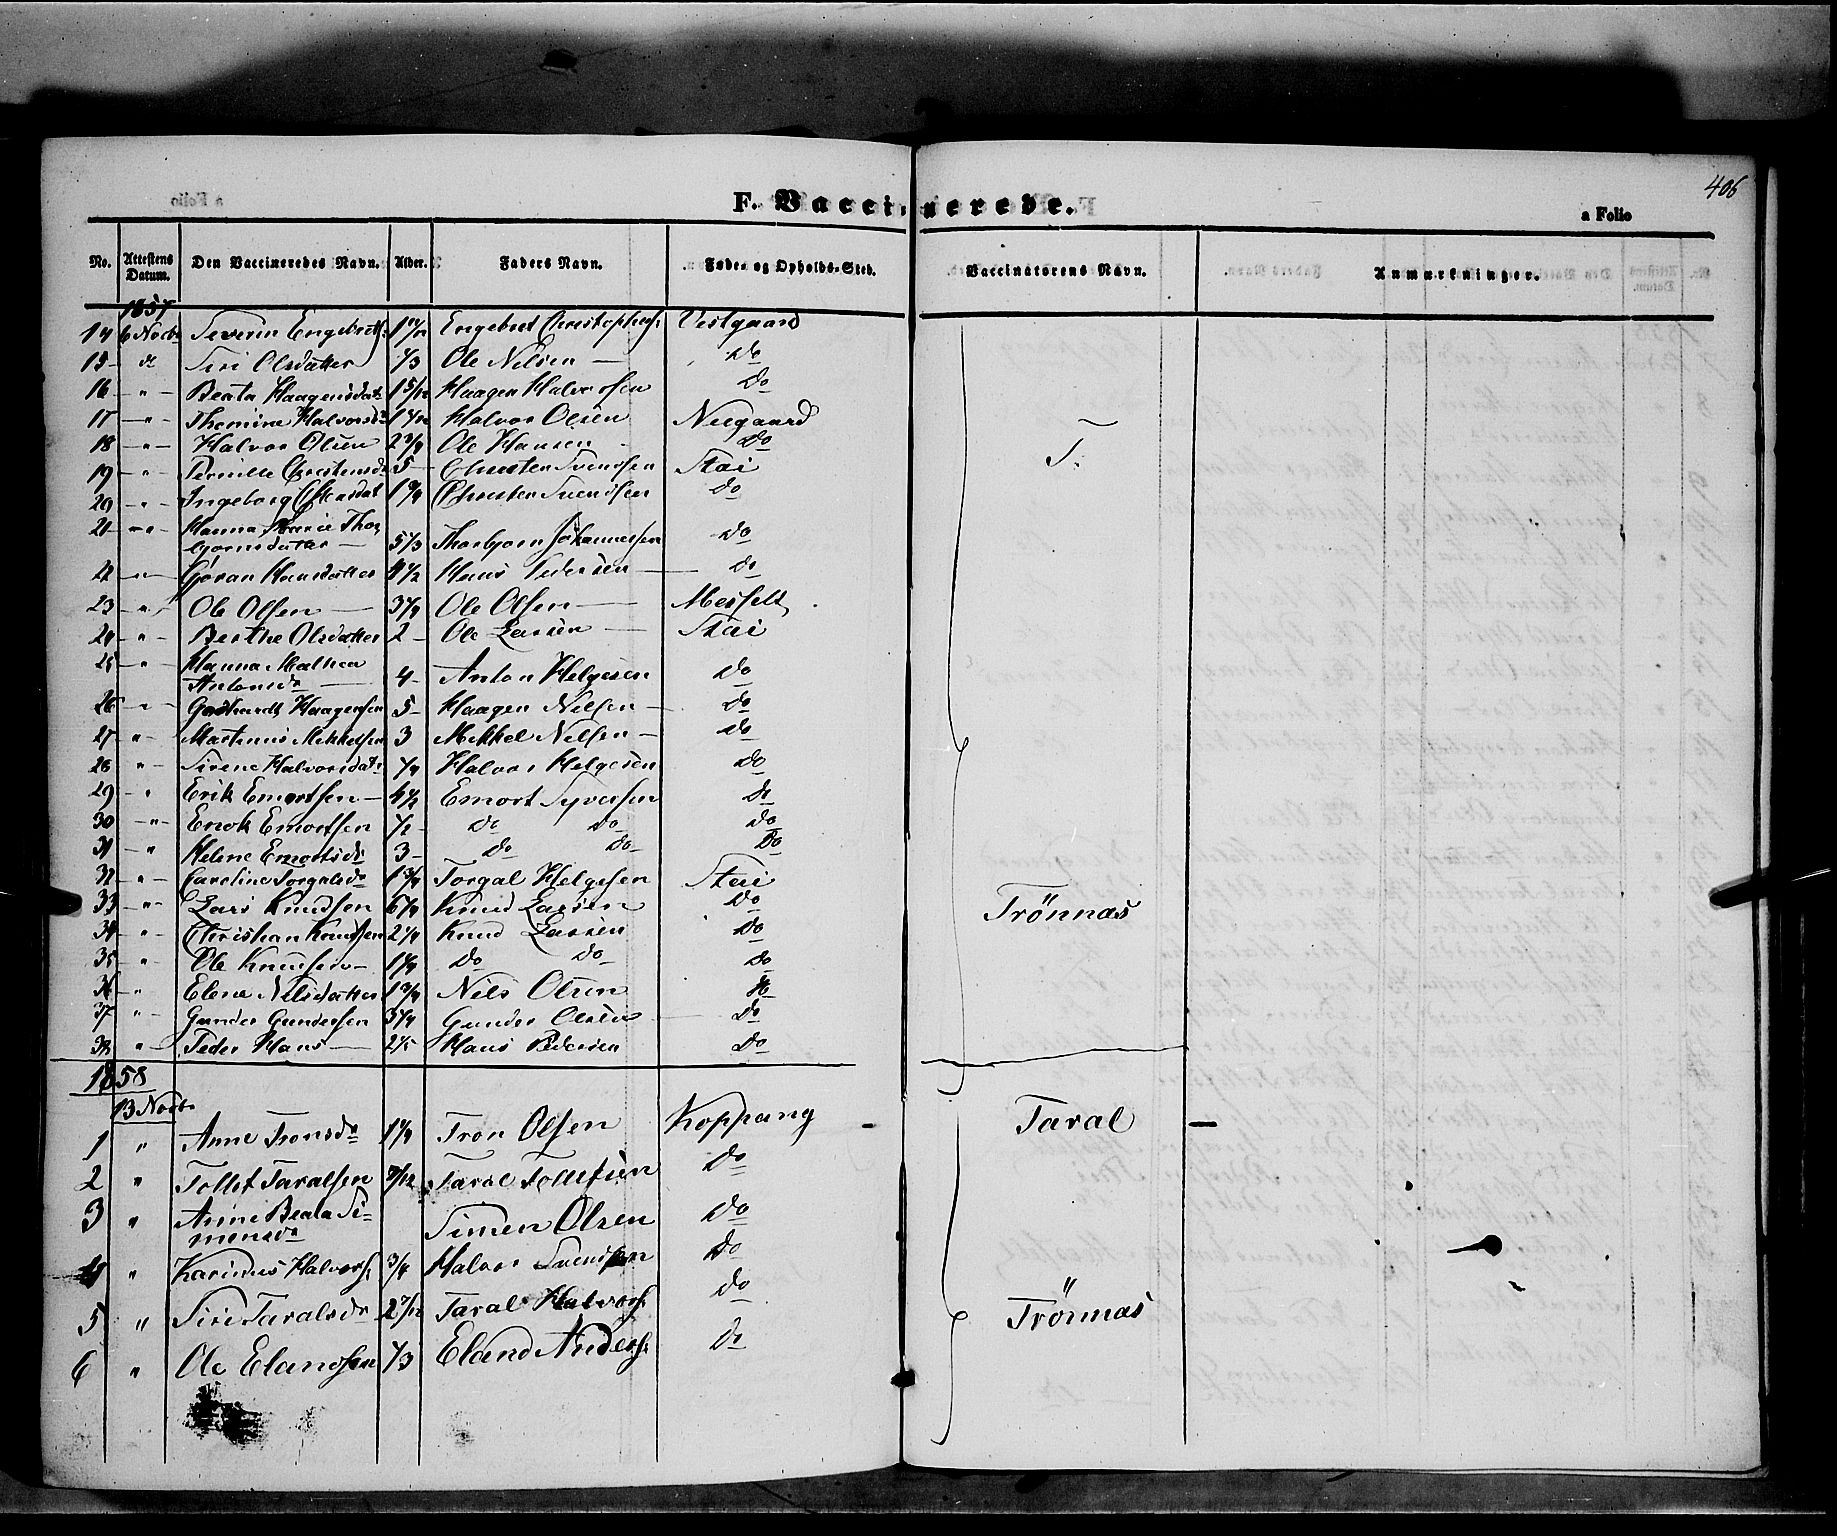 406
F. Vaccinerede.
a Folio
No. Attestens Datum. Den Vaccineredes Navn. Alder. Faders Navn. Føde- og Opholds-Sted. Vaccinatorens Navn. Anmærkninger.
1857
14 6 Novbr Severin Engebretts: 1 Engebret Christophers: Vestgaard
15 do Siri Olsdatter 1/3 Ole Nilsen Do
16 " Beata Haagensdatr 1 5/12 Haagen Halvorsen Do
17 " Thomine Halvorsdr Halvor Olsen Neegaard
18 " Halvor Olsen 2 3/4 Ole Hansen Do
19 " Pernille Christensdr 5 Christen Svendsen Stai
20 " Ingeborg Christen Svendsen Do
21 " Hanna Marie Thor
bjørnsdatter 5 1/3 Thorbjørn Johannessen Do
22 " Gjøran Hansdatter Hans Pedersen Do
23 " Ole Olsen 3 1/4 Ole Olsen Messelt
24 " Berthe Olsdatter 2 Ole Larsen Stai
25 " Hanna Mathea
Antonsdr 4 Anton Helgesen Do
26 " Haagensen 5 Haagen Nilsen Do
27 " Martinus Mikkelsen 3 Mikkel Nilsen Do
28 " Sirene Halvorsdatr 1/4 Halvor Helgesen Do
29 " Erik Emortsen 4 1/2 Emort Syversen Do
30 " Enok Emortsen 1/2 Do Do Do
31 " Helene Emortsdr 3 Do Do Do
32 " Caroline Torgalsdr 1 3/4 Torgal Helgesen Stai
33 " Lars Knudsen 6 1/4 Knud Larsen Do
34 " Christian Knudsen 2 1/4 Knud Larsen Do
35 " Ole Knudsen 1 1/4 Do Do Do
36 " Elene Nilsdatter 1 3/4 Nils Olsen Do
37 " Gunder Gundersen 3 1/4 Gunder Olsen Do
38 " Peder Hans Hans Pedersen Do
T.
Trönnas
1858
13 Novbr
1 " Anne Tronsdr 1 1/4 Tron Olsen Koppang Taral
2 " Tollef Taralsen 7/12 Taral Tollefsen Do
3 " Anne Beata Si-
monsdr Simen Olsen Do
4 " Karinus Halvors: 3/4 Halvor Svendsen Do
5 " Siri Taralsdr 2 7/12 Taral Halvors: Do " Trönnas
6 " Ole Elandsen 1/3 Eland Anders: Do